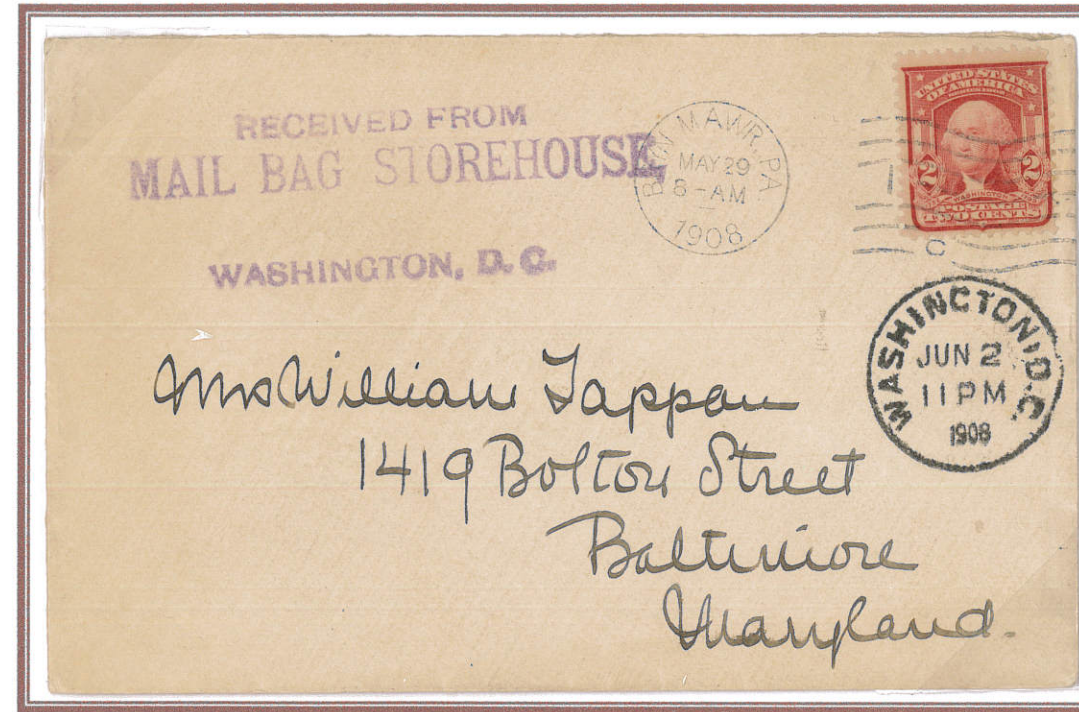 RECEIVED FROM
MAIL BAG STOREHOUSE,
WASHINGTON, D. C.
BRYN MAWR, PA
MAY 29
8 - AM
1908
UNITED STATES
OF AMERICA
2 2
WASHINGTON
POSTAGE
TWO CENTS
C
WASHINGTON, D.C.
JUN 2
11 PM
1908
Mrs William Tappan
1419 Bolton Street
Baltimore
Maryland.